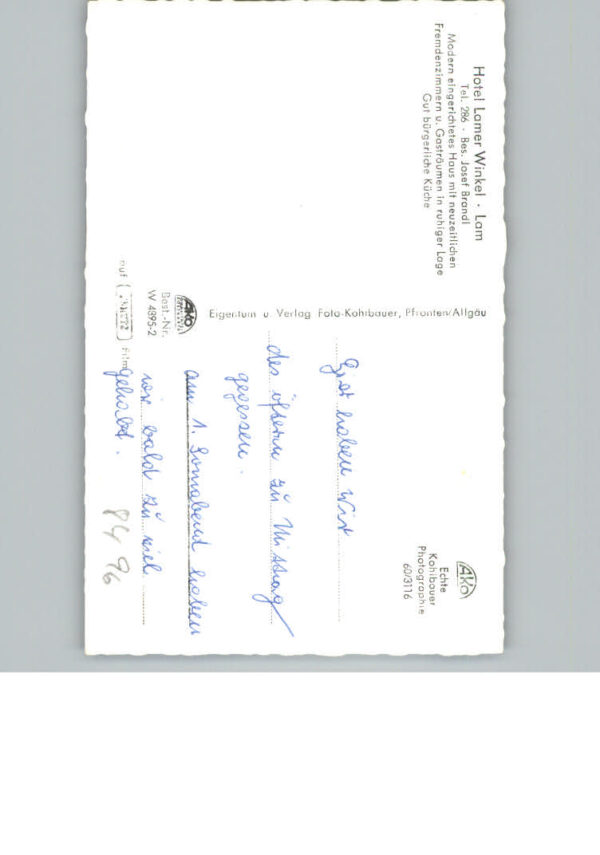 Hotel Lamer Winkel · Lam
Tel. 286 · Bes. Josef Brandl
Modern eingerichtetes Haus mit neuzeitlichen
Fremdenzimmern u. Gasträumen in ruhiger Lage
Gut bürgerliche Küche
Eigentum u. Verlag Foto-Kohlbauer, Pfronten/Allgäu
AKO
Best.-Nr.
W 4395-2
auf
Film
AKO
Echte
Kohlbauer
Photographie
60/3116
haben wir
des öftern zu Mittag
gegessen.
am 1. Sonnabend haben
wir bald zu viel
gehabt.
84 96